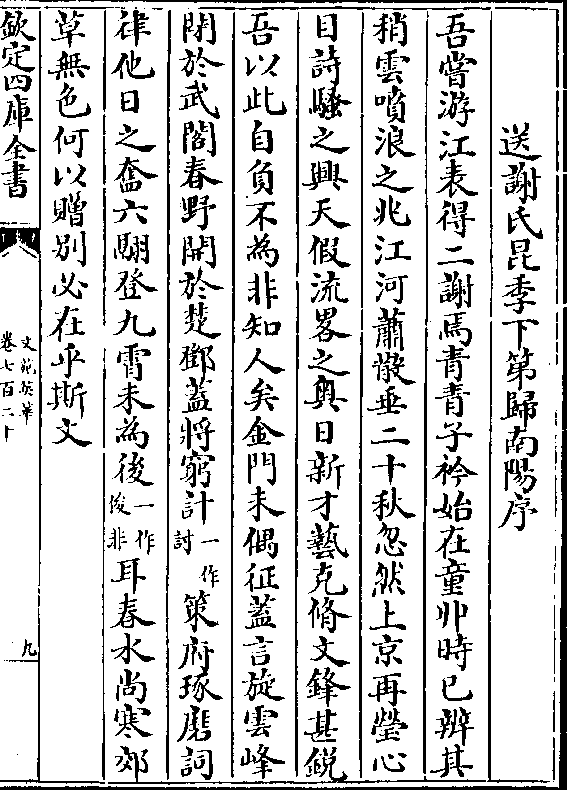 送謝氏昆季下第歸南陽序
吾嘗游江表得二謝焉青青子衿始在童丱時已辨其
稍雲噴浪之兆江河蕭散垂二十秋忽然上京再瑩心
目詩騷之興天假流畧之奥日新才藝克脩文鋒甚銳
吾以此自負不為非知人矣金門未偶征蓋言旋雲峰
閉於武關春野開於楚鄧蓋將窮計一作討策府琢磨詞
律他日之奮六翮登九霄未為後一作俊非耳春水尚寒郊
草無色何以贈別必在乎斯文
欽定四庫全書
文苑英華
卷七百二十
九